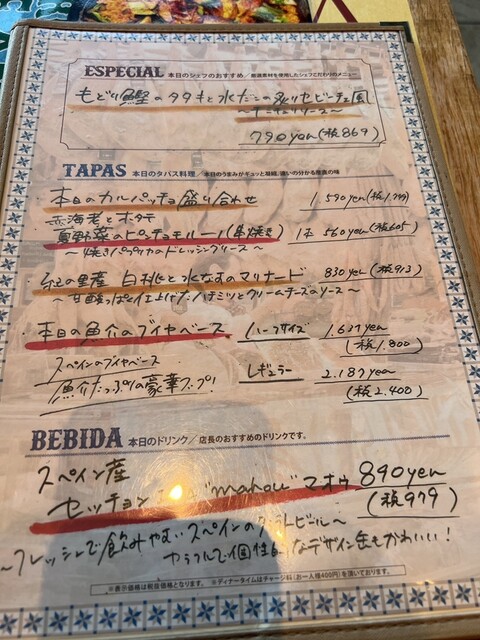 ESPECIAL 本日のシェフのおすすめ／厳選素材を使用したシェフこだわりのメニュー
もどり鰹のタタキと水だこの炙りセビーチェ風
790yen(税869)
TAPAS 本日のタパス料理／本日のうまみがギュッと凝縮、違いの分かる産直の味
・本日のカルパッチョ盛り合わせ 1,590yen(税1,749)
赤海老とホタテ
夏野菜のピンチョモルーノ(串焼き) 1本 560yen(税605)
～焼きパプリカのドレッシングソース～
・紀の里産 白桃と水なすのマリナード 830yen(税913)
～甘酸っぱく仕上げた ハチミツとクリームチーズのソース～
・本日の魚介のブイヤベース ハーフサイズ 1.637yen
(税1.800)
スペインのブイヤベース レギュラー 2.187yen
魚介たっぷりの豪華スープ! (税2.400)
BEBIDA 本日のドリンク／店長のおすすめのドリンクです。
スペイン産
セッチョン "mahou" マオウ 890yen
(税979)
～フレッシュで飲みやすいスペインのクラフトビール～
カラフルで個性的なデザイン缶もかわいい!
※表示価格は税抜価格となります。 ※ディナータイムはチャージ料(お一人様400円)を頂いております。